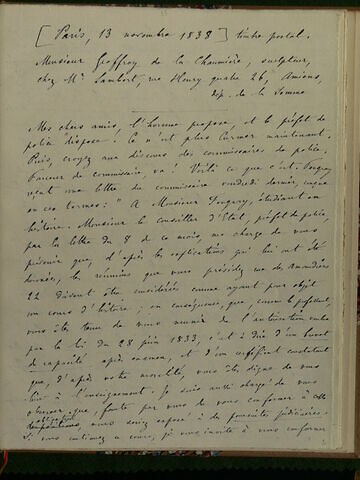 [Paris, 13 novembre 1838] timbre postal.
Monsieur Geoffroy de la Chaumière, sculpteur,
chez Mr Lambert, rue Henry quatre 26, Amiens,
dép. de la Somme
Mes chers amis, l'homme propose, et le préfet de
police dispose. Ce n'est plus l'armer maintenant.
Puis, croyez aux discours des commissaires de police.
Farceur de commissaire, va! Voilà ce que c'est.
reçut une lettre du commissaire vendredi dernier, conçue
en ces termes: "A Monsieur étudiant en
histoire. Monsieur le conseiller d'Etat, préfet de police,
par la lettre du 8 de ce mois, me charge de vous
prévenir que, d'après les explications qui lui ont été
données, les réunions que vous présidez rue des Amandiers
22 doivent être considérées comme ayant pour objet
un cours d'histoire; en conséquence, que, comme le professeur,
vous êtes tenu de vous munir de l'autorisation voulue
par la loi du 28 juin 1833, c'est à dire d'un brevet
de capacité après examen, et d'un certificat constatant
que, d'après votre moralité, vous êtes digne de vous
livrer à l'enseignement. Je suis aussi chargé de vous
observer que, faute par vous de vous conformer à cette
obligation
vous seriez exposé à des poursuites judiciaires.
Si vous continuez ce cours, je vous invite à vous conformer